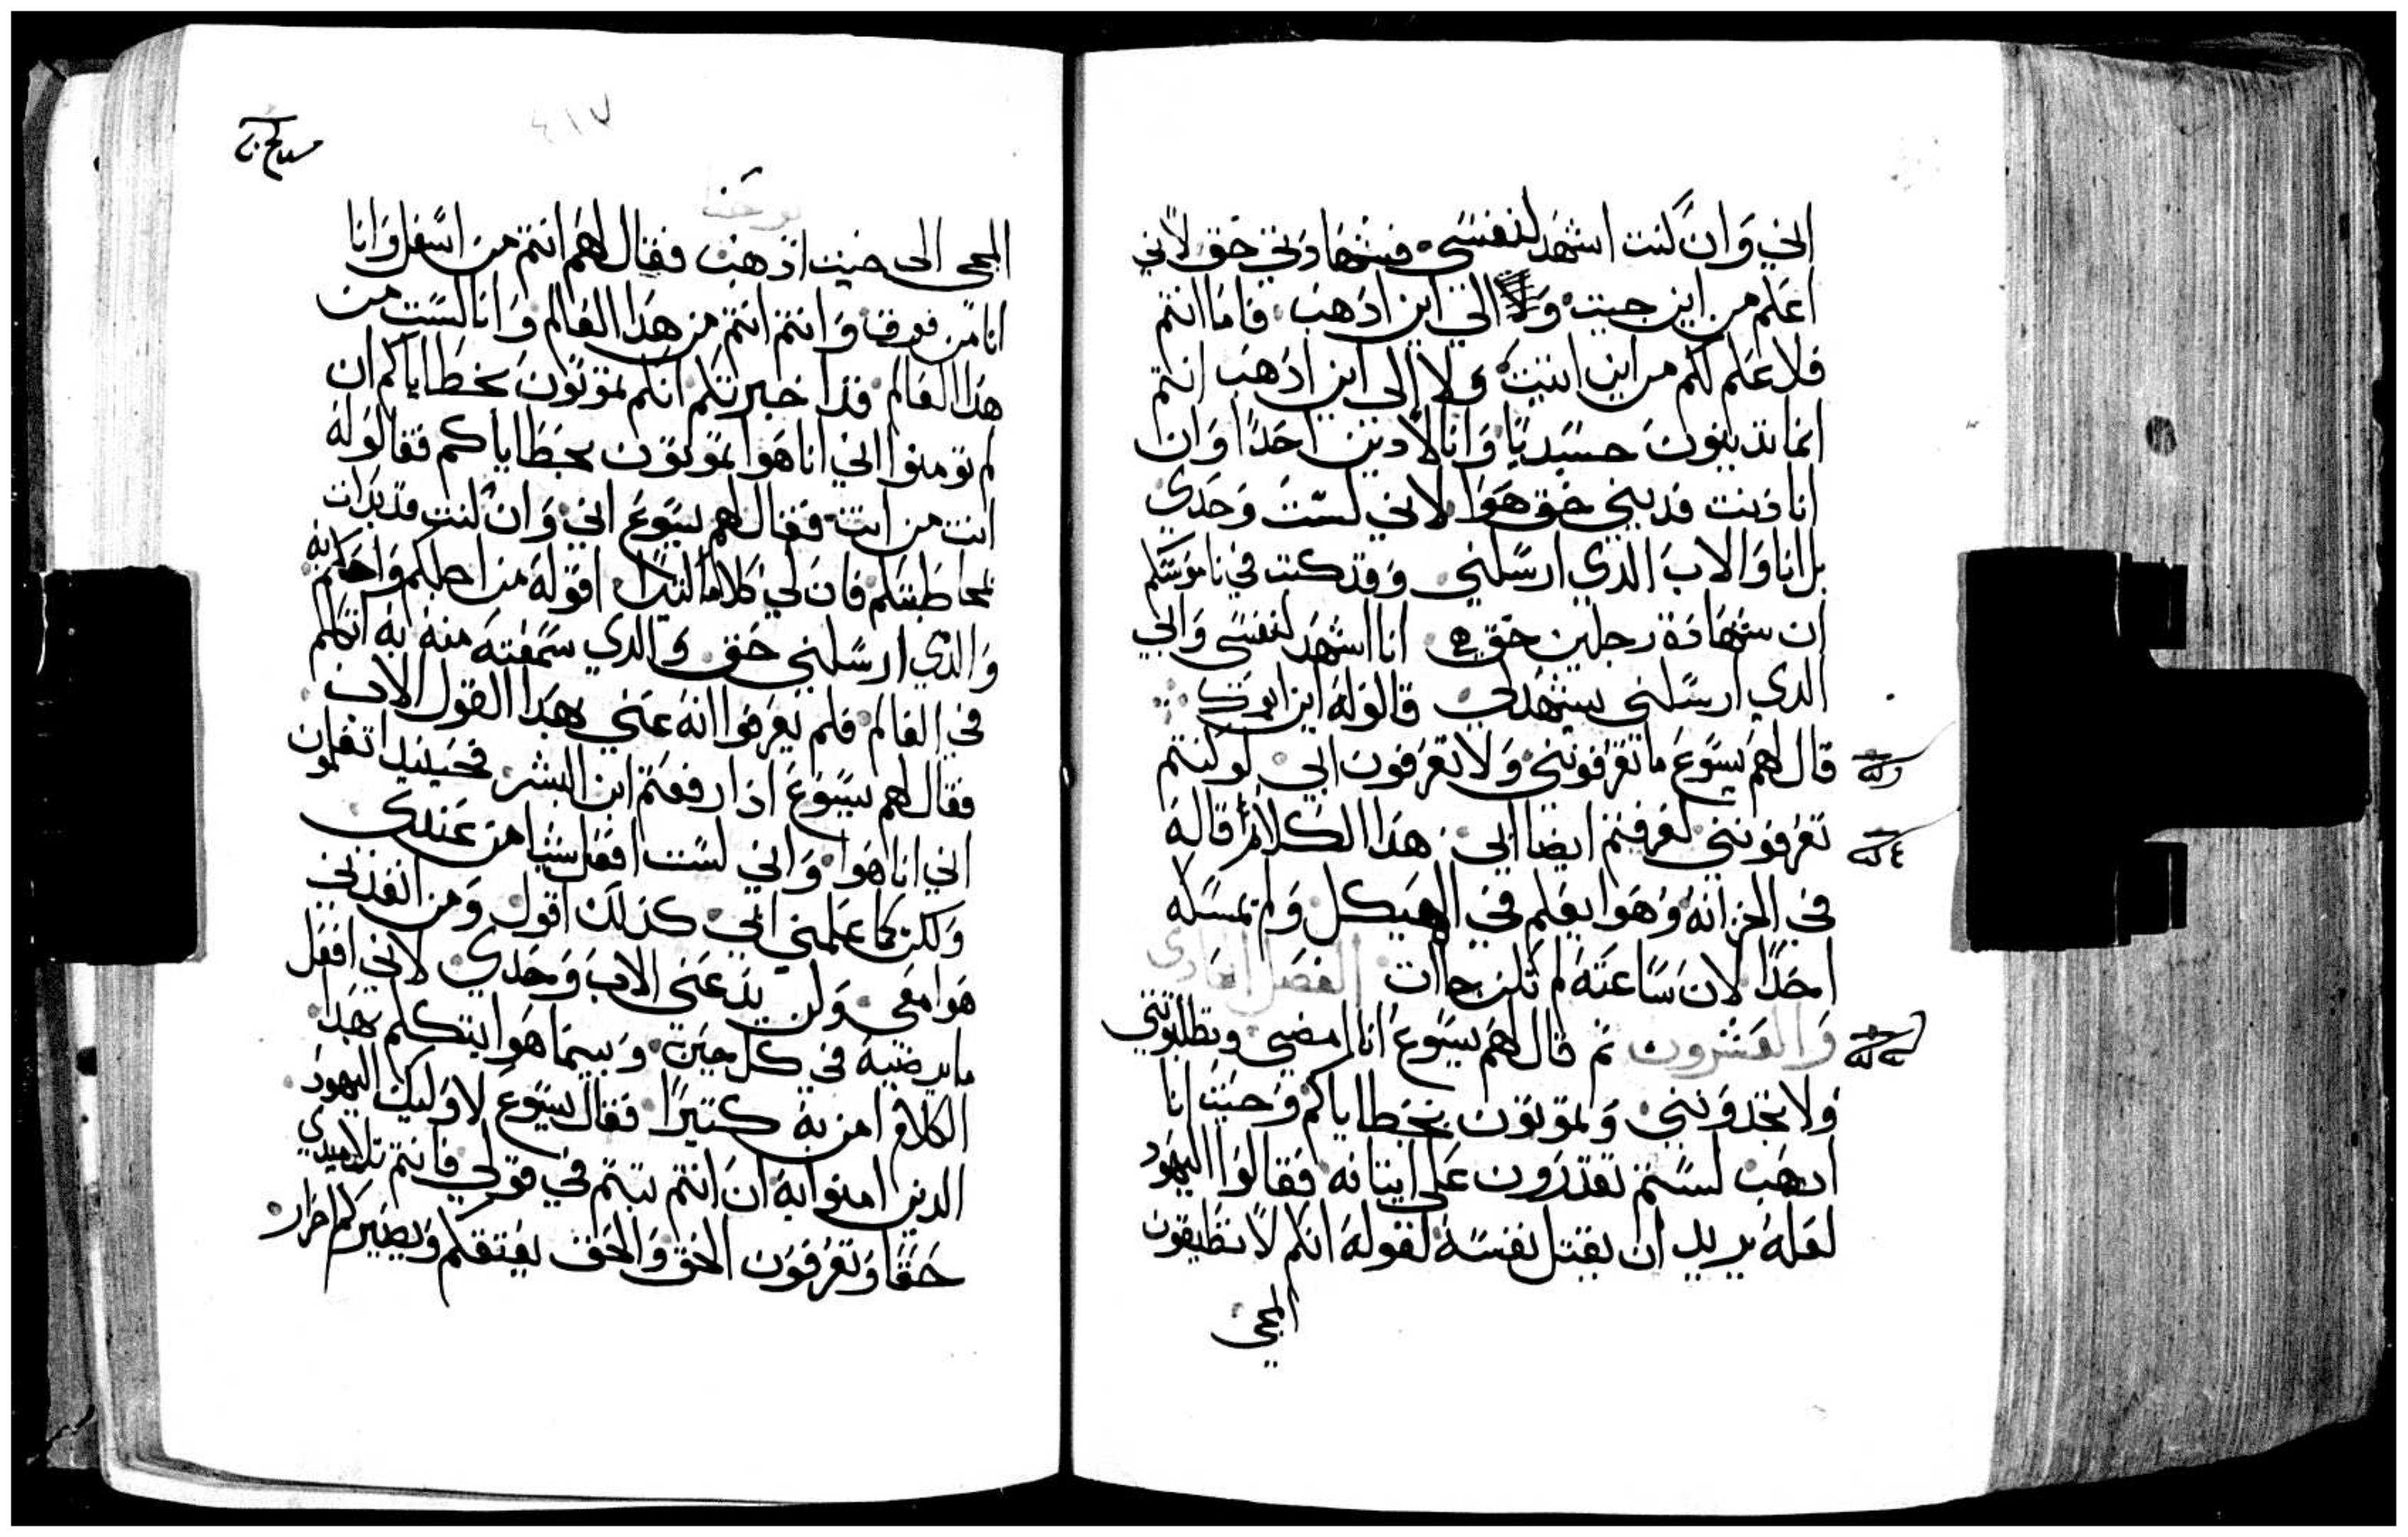 اني وان كنت اشهد لنفسي فشهادتي حق لاني
اعلم من اين جيت والي اين ادهب فاما انتم
فلا علم لكم من اين اتيت ولا الى اين ادهب انتم
انما تدينون جسديا وانا لا ادين احدا وان
انا دنت فديني حق هوا لاني لست وحدي
بل انا والاب الدي ارسلني وقد كتب في ناموسكم
ان شهادة رجلين حق هي انا اشهد لنفسي وابي
الدي ارسلني يشهد لي قالوا له اين ابوك
قال لهم يسوع ما تعرفونني ولا تعرفون ابي لو كنتم
تعرفونني لعرفتم ايضا ابي هدا الكلام قاله
في الخزانه وهوا يعلم في الهيكل ولم يمسكه
احدا لان ساعته لم تكن جاات الفصل الحادي
والعشرون تم قال لهم يسوع انا امضي وتطلبونني
ولا تجدونني وتموتون بخطاياكم وحيت انا
ادهب لستم تقدرون على اتيانه فقالوا اليهود
لعله يريد ان يقتل نفسه لقوله انكم لا تطيقون
المجي
٤١٧
يوحنا
المجي الى حيت ادهب فقال لهم انتم من اسفل وانا
انا من فوق وانتم انتم من هدا العالم وانا لست من
هدا العالم قد اخبرتكم انكم تموتون بخطاياكم ان
لم تومنوا اني انا هوا تموتون بخطاياكم فقالوا له
انت من انت فقال لهم يسوع اني وان كنت قد بدات
مخاطبتكم فان لي كلاما كتيرا اقوله من اجلكم واحكم به
والدي ارسلني حق والدي سمعته منه به اتكلم
في العالم فلم يعرفوا انه عنى بهدا القول الاب
فقال لهم يسوع ادا رفعتم ابن البشر فحينيد تعلمون
اني انا هوا واني لست افعل شيا من عندي
ولكن كما علمني ابي كدلك اقول ومن انفدني
هوا معي ولن يدعني الاب وحدي لاني افعل
ما يرضيه في كل حين وبينما هوا يتكلم بهدا
الكلام امن به كتيرا فقال يسوع لاوليك اليهود
الدين امنوا به ان انتم تبتم في قولي فانتم تلاميدي
حقا وتعرفون الحق والحق يعتقكم ويصيركم احرار